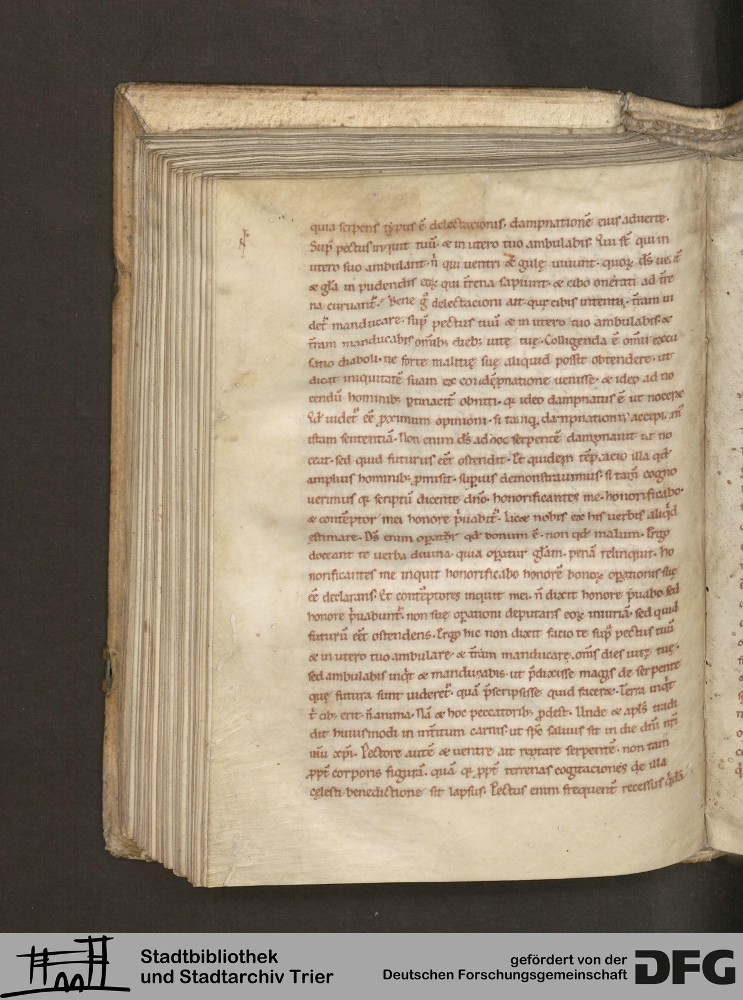 quia serpens typus ē delectacionis. dampnationē eius adverte.
Sup pectus inquit tuū. & in utero tuo ambulabis. Qui st̄ qui in
utero suo ambulant. n̄ qui ventri & gulę vivunt. quoꝝ d̄s vent̄
& gl̄a in pudendis eoꝝ qui t̄rena sapiunt. & cibo onerati ad t̄re
na curvant᷑. Bene g̊ delectacioni ait. quę cibis intenta. t̄ram vi
det᷑ manducare. sup pectus tuū & in utero tuo ambulabis. &
t̄ram manducabis omīb; dieb; vitę tuę. Colligenda ē omīs excu
satio diaboli. ne forte malitię suę aliquid possit obtendere. ut
dicat iniquitatē suam ex condēpnatione venisse. & ideo ad no
cendū hominib; ꝑtinacit̄ obniti. q; ideo dampnatus ē ut noceret
Qd̄ videt᷑ eē ꝓximum opinioni. si tanq dampnationū accepim̄
istam sententiā. Non enim d̄s ad hoc serpentē dampnavit ut no
ceat. sed quid futurus eēt ostendit. Et quidem tēptacio illa qd̄
amplius hominib; ꝓmisit. superius demonstravimus. si tam̄ cogno
verimus q; scriptū dicente dn̄o. honorificantes me. honorificabo.
& contēptor mei honore p̄vabit᷑. licet nobis ex his verbis aliq̄d
estimare. D̄s enim oꝑat᷑ qd̄ bonum ē. non qd̄ malum. Ergo
doceant te verba divina. quia oꝑatur gl̄am. penā relinquit. Ho
norificantes me inquit honorificabo honorē bonoꝝ oꝑationis suę
eē declarans. Et contēptores inquit mei. n̄ dixit honore p̄vabo. sed
honore p̄vabunt᷑. non suę oꝑationi deputans eoꝝ iniuriā. sed quid
futurū eēt ostendens. Ergo hic non dixit facio te sup pectus tuū
& in utero tuo ambulare & t̄ram manducare. om̄s dies vitę tuę.
sed ambulabis inq̄t & manducabis. ut p̄dixisse magis de serpente
quę futura sunt videret᷑. quā p̄scripsisse quid faceret. Terra inq̄t
t̄ cib; erit. n̄ anima. Nā & hoc peccatorib; ꝓdest. Unde & apl̄s tradi
dit huiusmodi in int̄itum carnis. ut sp̄c salvus sit in die dn̄i nr̄i
ih̄u xp̄i. Pectore autē & ventre ait reptare serpentē. non tam
ꝓpt̄ corporis figurā. quā q; ꝓpt̄ terrenas cogitaciones de illa
cęlesti benedictione sit lapsus. Pectus enim frequent̄ recessus
Stadtbibliothek
und Stadtarchiv Trier
gefördert von der
Deutschen Forschungsgemeinschaft
DFG